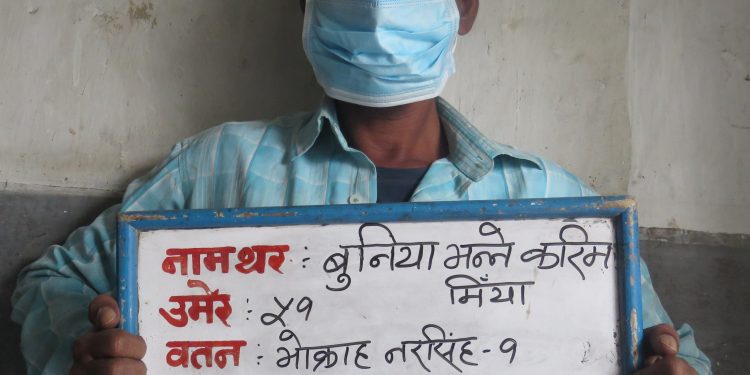 नाम थर : बुनिया भन्ने करिम
मिँया
उमेर : ५१
वतन : भोक्राह नरसिंह-१